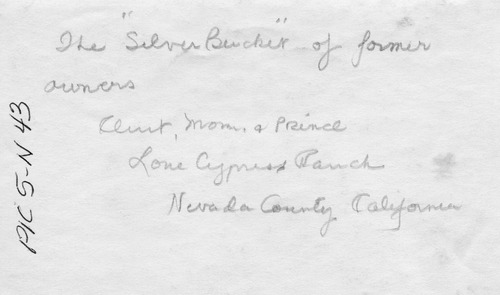 The "Silver Bucket" of former
owners
Clint, Mom, & Prince
Lone Cypress Ranch
Nevada County California
PIC 5-N 43